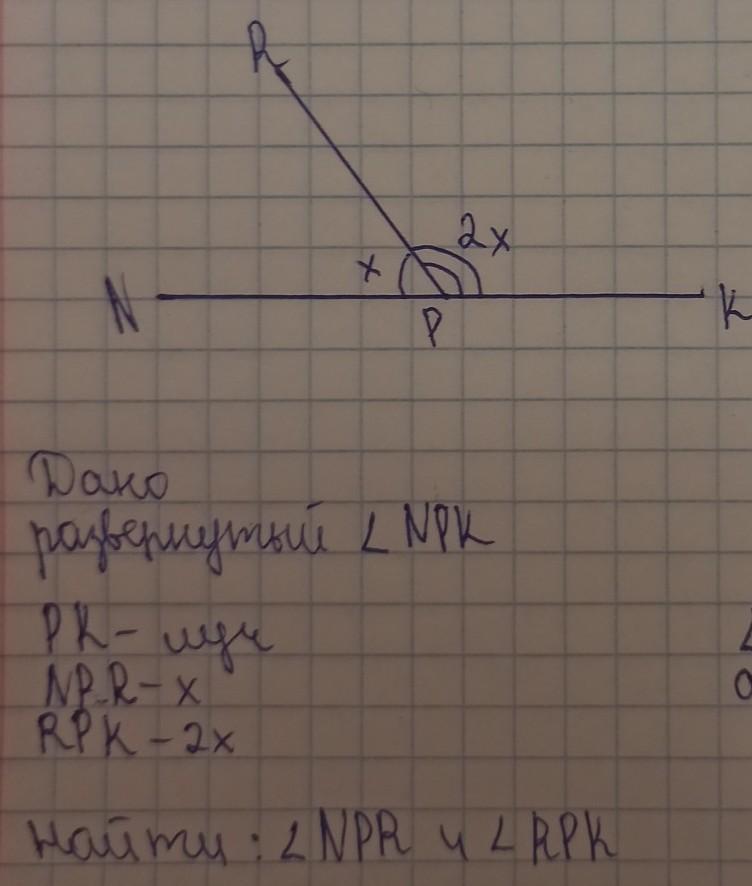 R
2x
x
N
P
K
Дано
развернутый ∠ NPK
PR - луч
NPR - x
RPK - 2x
найти : ∠ NPR и ∠ RPK